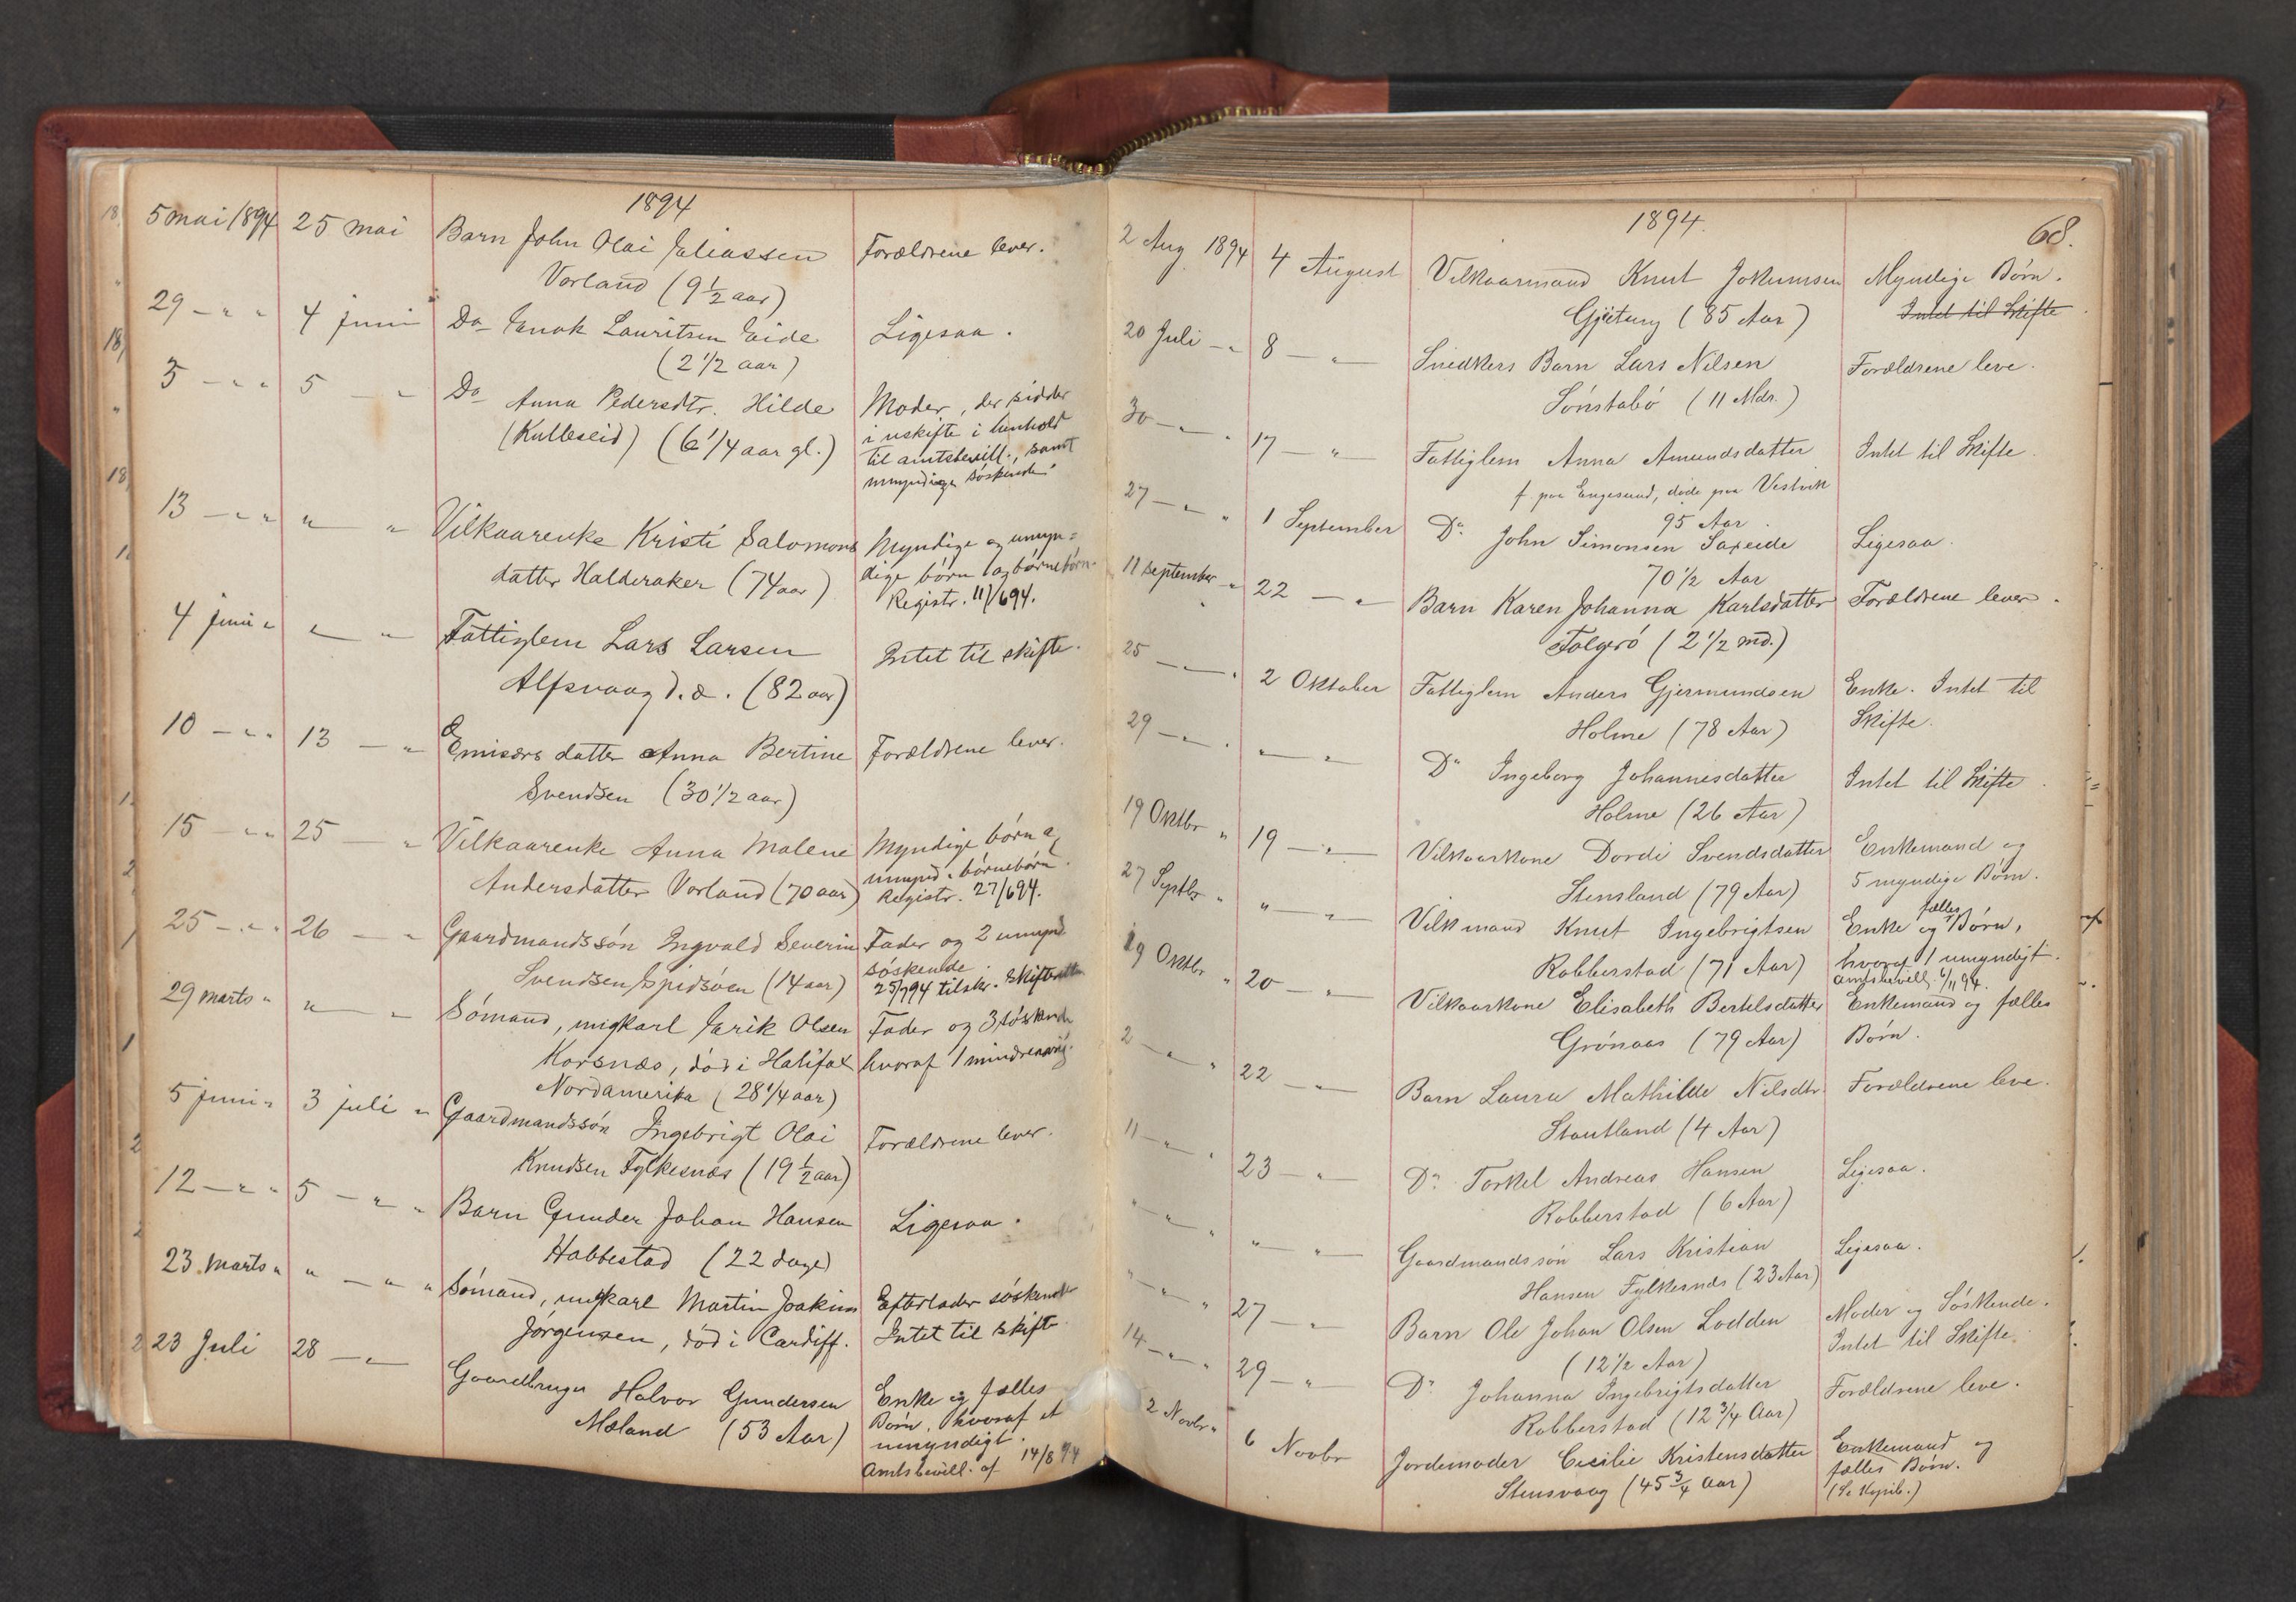 1894
5 mai 1894 25 mai Barn John Olai Juliassen Forældrene lever.
Vorland (9 1/2 aar)
29 - " " 4 juni Do Enok Lauritsen Eide Ligesaa.
(2 1/2 aar)
3 - " " 5 - " Do Anna Pedersdtr. Hilde Moder, der sidder
(Kulleseid) (6 1/4 aar gl.) i uskifte i henhold
til amtsbevill., samt
umyndige søskende.
13 - " " " - " Vilkaarenke Kristi Salomons Myndige og umyn=
datter Halderaker (74 aar) dige børn og børnebørn.
Registr. 11/6 94.
4 juni " " - " Fattiglem Lars Larsen Intet til skifte.
Alfsvaag d.æ. (82 aar)
10 - " " 13 - " Emisærs datter Anna Bertine Forældrene lever.
Svendsen (30 1/2 aar)
15 - " " 25 - " Vilkaarenke Anna Malene Myndige børn &
Andersdatter Vorland (70 aar) umynd. børnebørn.
Registr. 27/6 94.
25 - " " 26 - " Gaardmandssøn Ingvald Severin Fader og 2 umynd
Svendsen Spidsøen (14 aar) søskende.
25/7 94 tilskr. Skifteretten
29 marts " " - " Sømand, ungkarl Erik Olsen Fader og 3 søskende
Korsnæs, død i Halifax hvoraf 1 mindreaarig.
Nordamerika (28 1/4 aar)
5 juni " 3 juli " Gaardmandssøn Ingebrigt Olai Forældrene lever.
Knudsen Fylkesnæs (19 1/2 aar)
12 - " " 5 - " " Barn Gunder Johan Hansen Ligesaa.
Habbestad (22 dage)
23 marts " " - " " Sømand, ungkarl Martin Joakim Efterlader søskende
Jørgensen, død i Cardiff. Intet til skifte
23 Juli 28 - " Gaardbruger Halvor Gundersen Enke og fælles
Mæland (53 Aar) Børn, hvoraf et
umyndigt.
Amtsbevill. af 14/8 94
1894. 68.
2 Aug 1894 4 August Vilkaarmand Knut Jokumsen Myndige Børn.
Gjetung (85 Aar) Intet til Skifte
20 Juli - " 8 - " Snedkers Barn Lars Nilsen Forældrene leve.
Sønstabø (11 Mdr.)
30 - " " 17 - " Fattiglem Anna Amundsdatter Intet til Skifte.
f. paa Engesund, døde paa Vestvik
95 Aar.
27 - " " 1 September Do John Simonsen Saxeide Ligesaa.
70 1/2 Aar
11 september " 22 - " Barn Karen Johanna Karlsdatter Forældrene lever.
Folgerø (2 1/2 md.)
25 - " " 2 Oktober Fattiglem Anders Gjermundsen Enke. Intet til
Holme (78 Aar) Skifte.
29 - " " " - " Do Ingeborg Johannesdatter Intet til Skifte.
Holme (26 Aar)
19 Oktbr " 19 - " Vilkaarkone Dordi Svendsdatter Enkemand og
Stensland (79 Aar) 5 myndige Børn.
27 Septbr " " - " Vilkmand Knut Ingebrigtsen Enke og fælles Børn,
Robberstad (71 Aar) hvoraf 1 umyndigt.
Amtsbevill. 6/11 94.
19 Oktbr " 20 - " Vilkaarkone Elisabeth Bertelsdatter Enkemand og fælles
Grønaas (79 Aar) Børn.
2 - " " 22 - " Barn Laura Mathilde Nilsdtr. Forældrene leve.
Stautland (4 Aar)
11 - " " 23 - " Do Torkel Andreas Hansen Ligesaa.
Robberstad (6 Aar)
" - " " " - " Gaardmandssøn Lars Kristian Ligesaa.
Hansen Fylkesnæs (23 Aar)
" - " " 27 - " Barn Ole Johan Olsen Lodden Moder og Søskende.
(12 1/2 Aar) Intet til Skifte.
14 - " " 29 - " Do Johanna Ingebrigtsdatter Forældrene leve.
Robberstad (12 3/4 Aar)
2 Novbr " 6 Novbr Jordemoder Cecilie Kristensdatter Enkemand og
Stensvaag (45 3/4 Aar) fælles Børn.
(Se Kopib.)